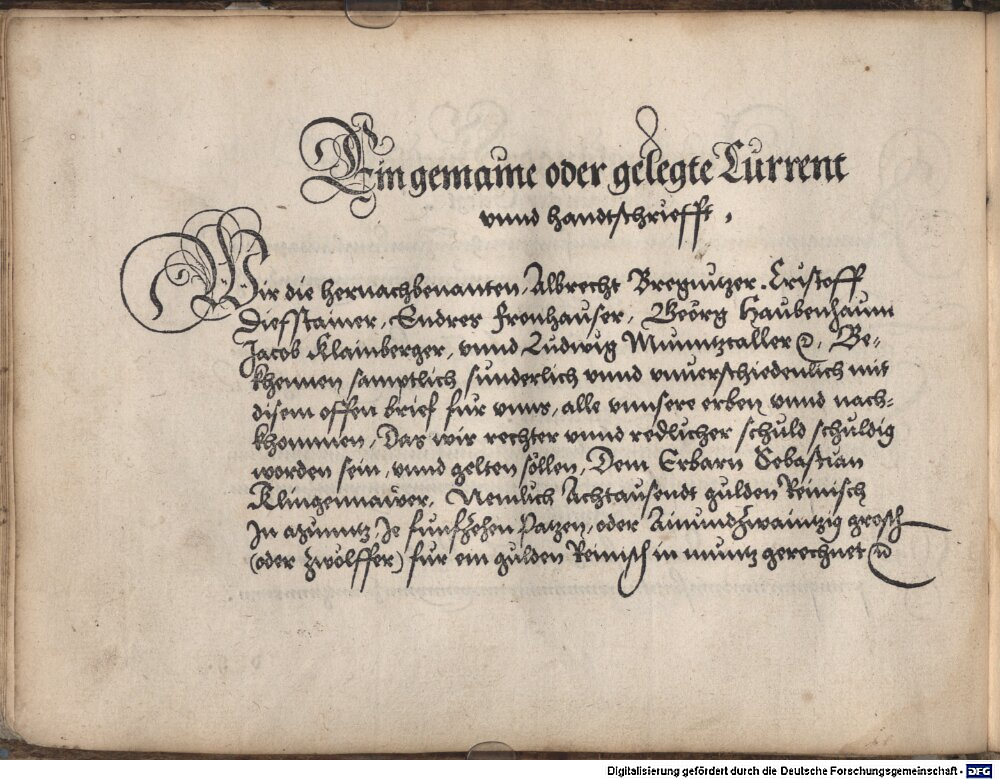 Ein gemaine oder gelegte Current
vnnd handtschriefft.
Wir die hernachbenanten, Albrecht Bregnitzer. Cristoff
Diesstainer, Endres Fronhauser, Georg Haubenhaum
Jacob Klainberger, vnnd Ludwig Munntzcaller ⁊c, Be-
khennen samptlich sunderlich vnnd vnuerschiedenlich mit
disem offen brief fur vnns, alle vnnsere erben vnnd nach-
khommen, Das wir rechter vnnd redlicher schuld schuldig
worden sein, vnnd gelten söllen, Dem Erbarn Sebastian
Klingennawer, Nemlich Achtausendt gulden Reinisch
In Munntz, Je funfzehen Patzen, oder Ainundzwaintzig grosch
(oder zwölffer) fur ein gulden Reinisch in muntz gerechnet ⁊c
Digitalisierung gefördert durch die Deutsche Forschungsgemeinschaft - DFG